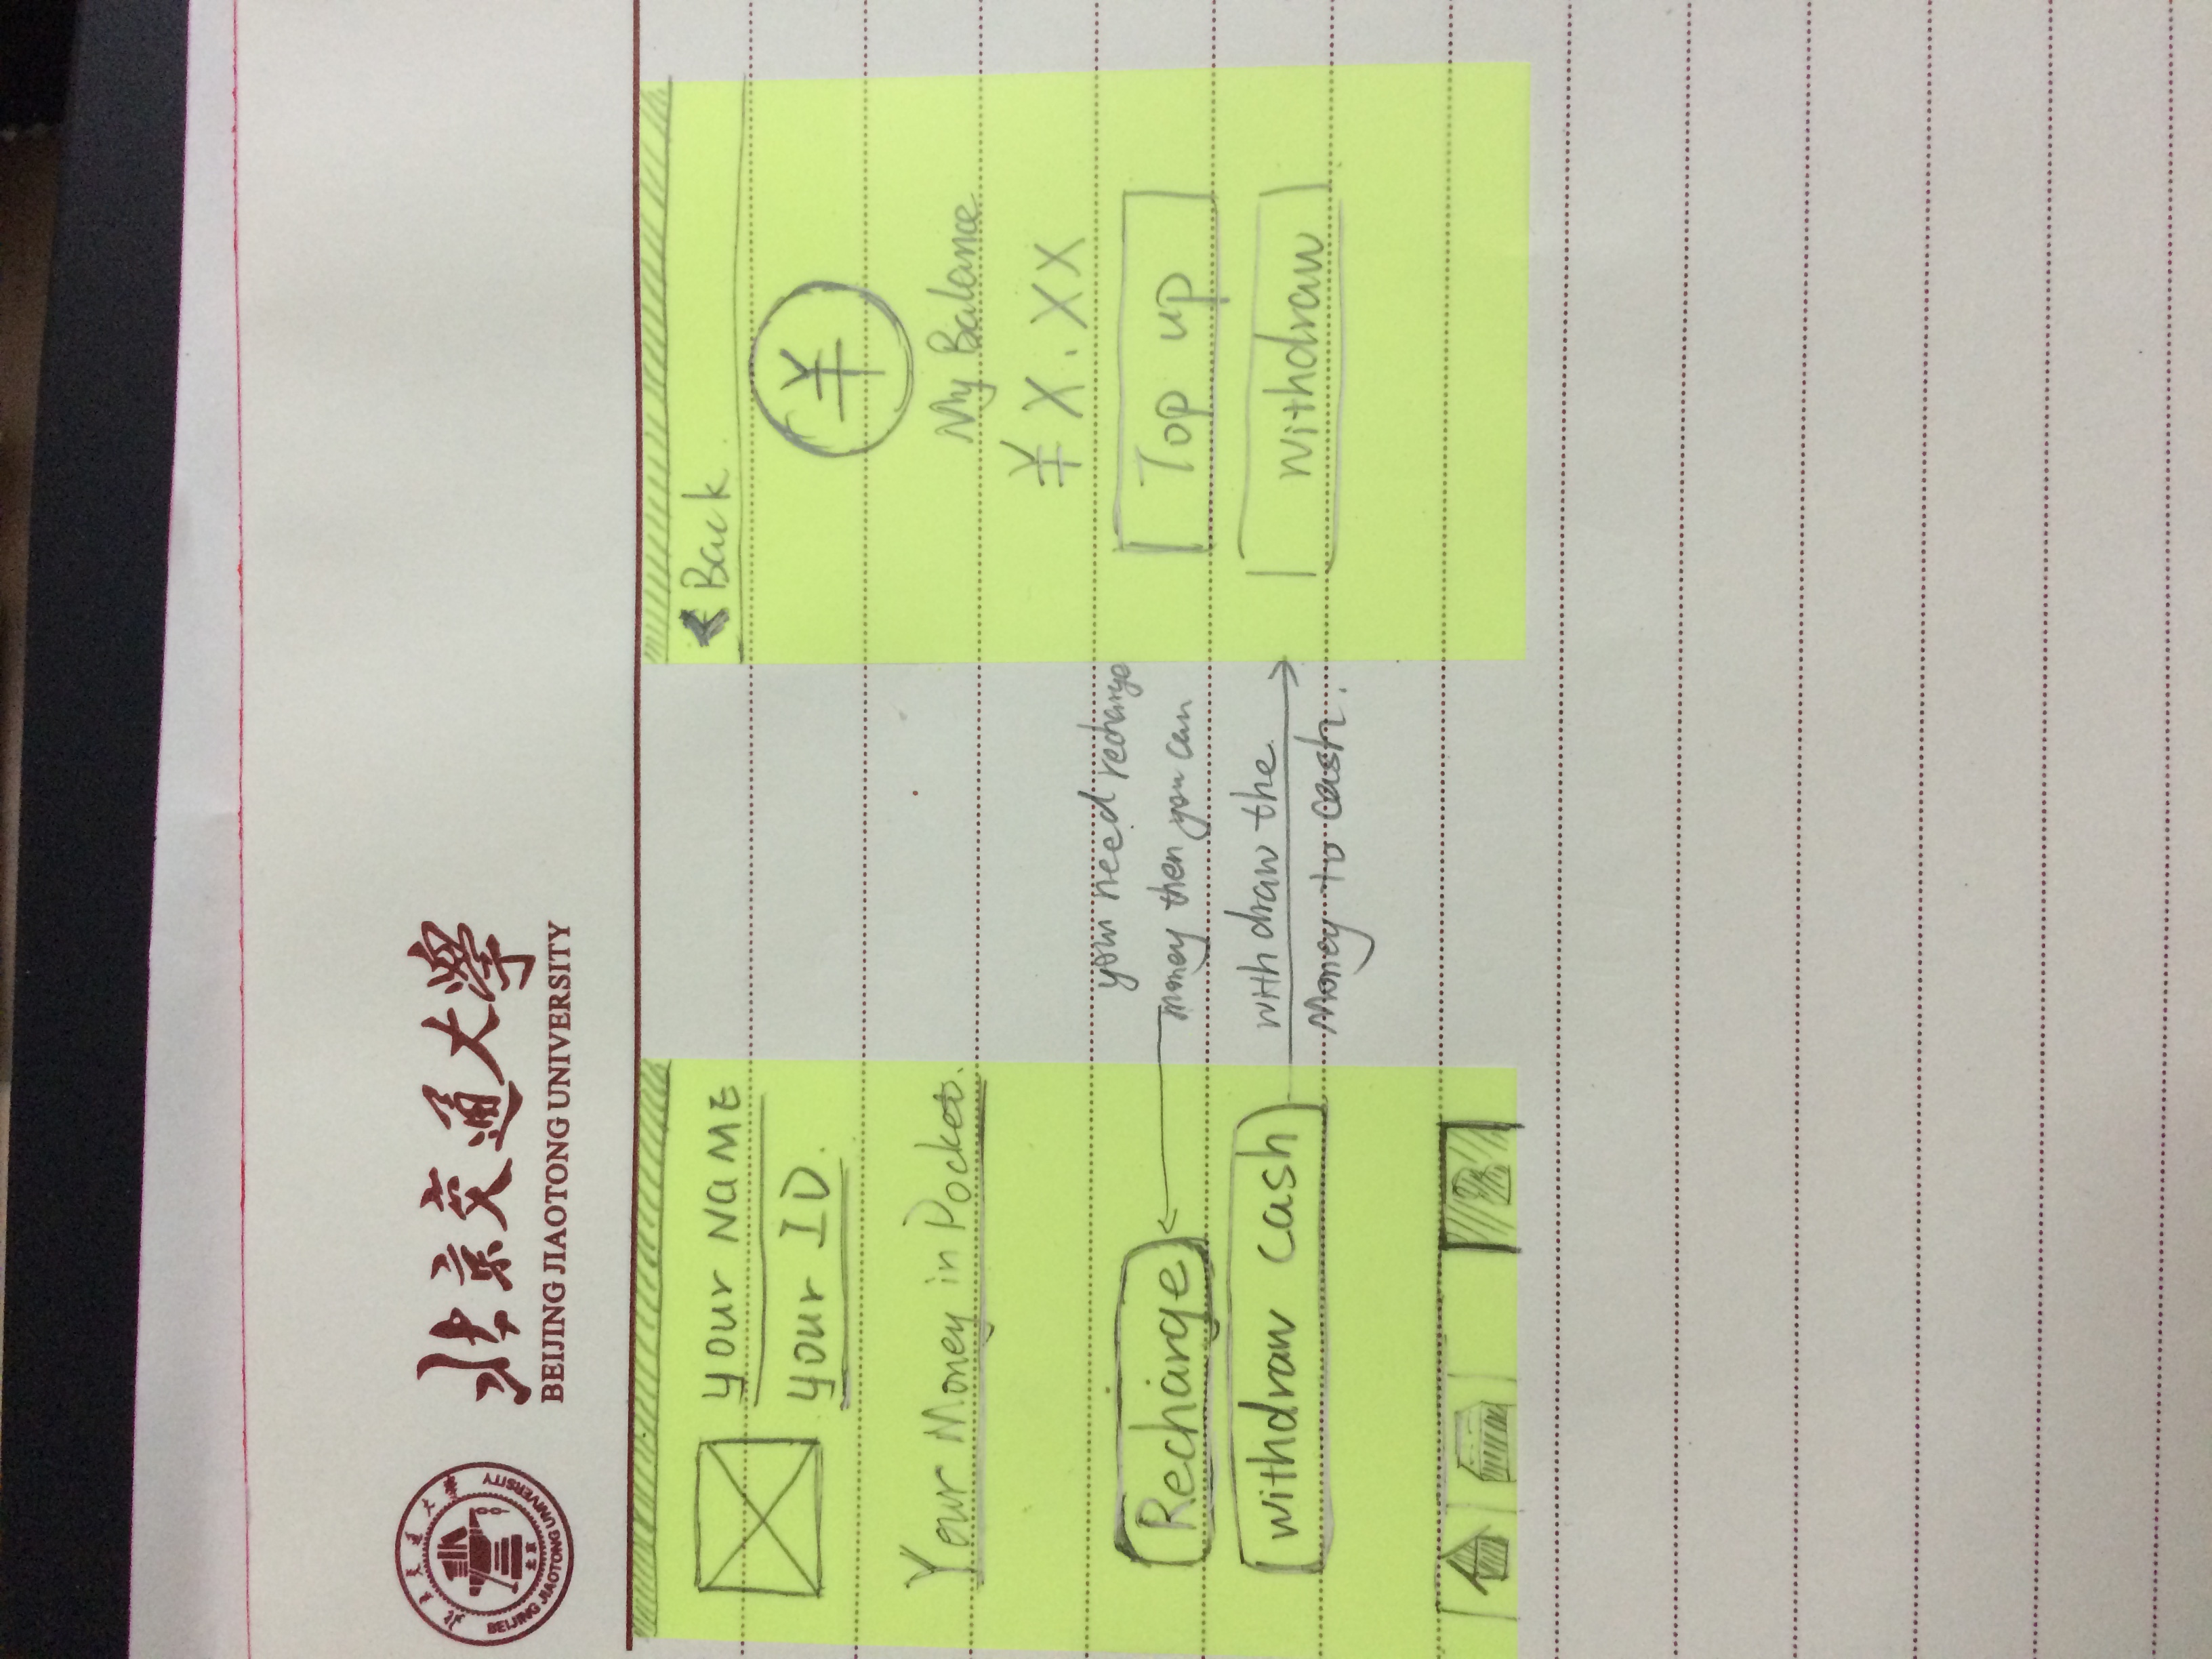 北京交通大学
BEIJING JIAOTONG UNIVERSITY
北京
北京交通大學
BEIJING JIAOTONG UNIVERSITY
your NAME
your ID.
Your Money in Pocket.
Recharge
withdraw cash
you need recharge
money then you can
withdraw the
Money to cash.
Back
¥
My Balance
¥ X.XX
Top up
withdraw